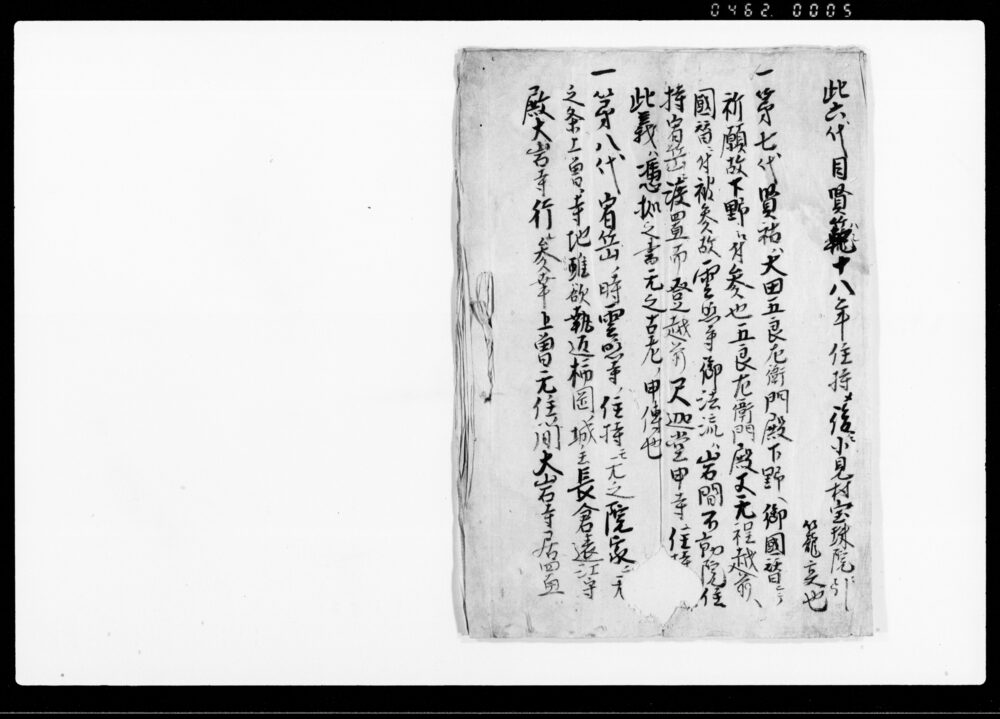 0462. 0005
此六代目賢範十八年住持メ後小見村宝珠院ニ引
籠立也
一第七代賢祐ハ犬田五良左衛門殿下野ヘ御國替ニ
祈願故下野ニ付参也五良左衛門殿又无程越前ヘ
國替ニ付被参故雲照寺御法流ハ岩間不動院住
持宥岳ニ渡置而登越前ノ尺迦堂申寺住持
此義ハ慥成之書无之古老ノ申傳也
一第八代宥岳ノ時雲照寺ノ住持ニモ无之院家ニ
之条上曽ノ寺地雖欲執近柿岡ノ城主長倉遠江守
殿大岩寺行参本上曽元住間大岩寺居四五